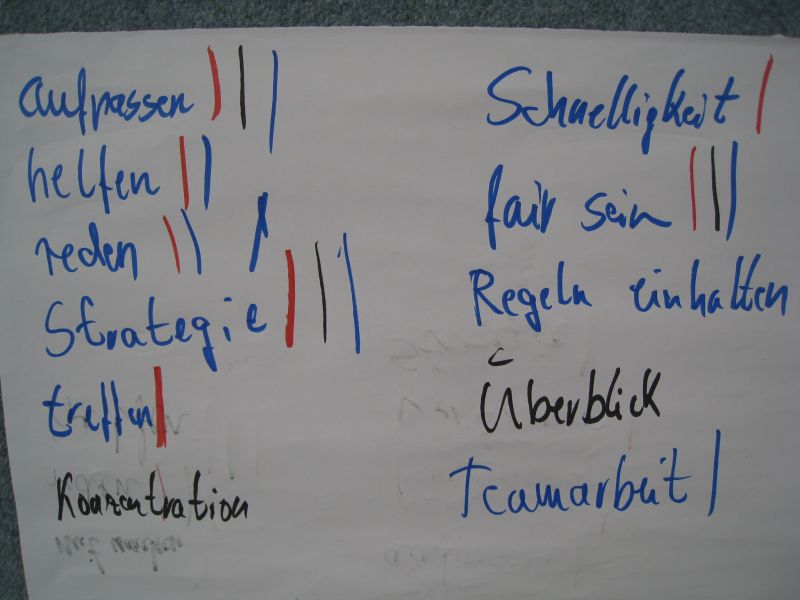 aufpassen
helfen
reden
Strategie
treffen
Konzentration
mit machen
Schnelligkeit
fair sein
Regeln einhalten
Überblick
Teamarbeit